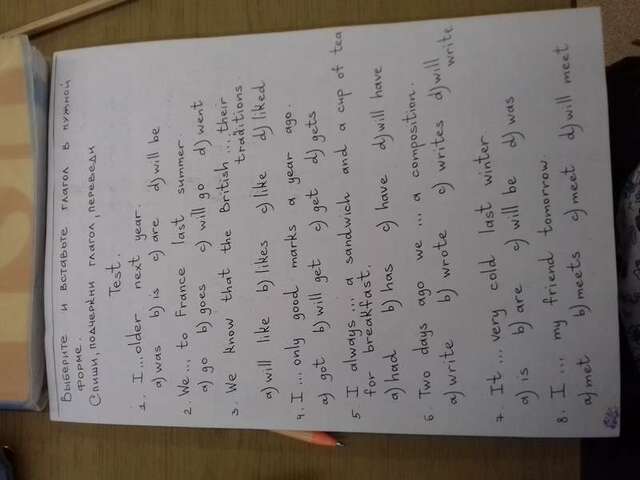 Выберите и вставьте глагол в нужной
форме.
Спиши, подчеркни глагол, переведи
Test.
1. I ... older next year.
a) was b) is c) are d) will be
2. We ... to France last summer.
a) go b) goes c) will go d) went
3. We know that the British ... their
traditions
a) will like b) likes c) like d) liked
4. I ... only good marks a year ago.
a) got b) will get c) get d) gets
5. I always ... a sandwich and a cup of tea
for breakfast.
a) had b) has c) have d) will have
6. Two days ago we ... a composition.
a) write b) wrote c) writes d) will
write
7. It ... very cold last winter.
a) is b) are c) will be d) was
8. I ... my friend tomorrow.
a) met b) meets c) meet d) will meet